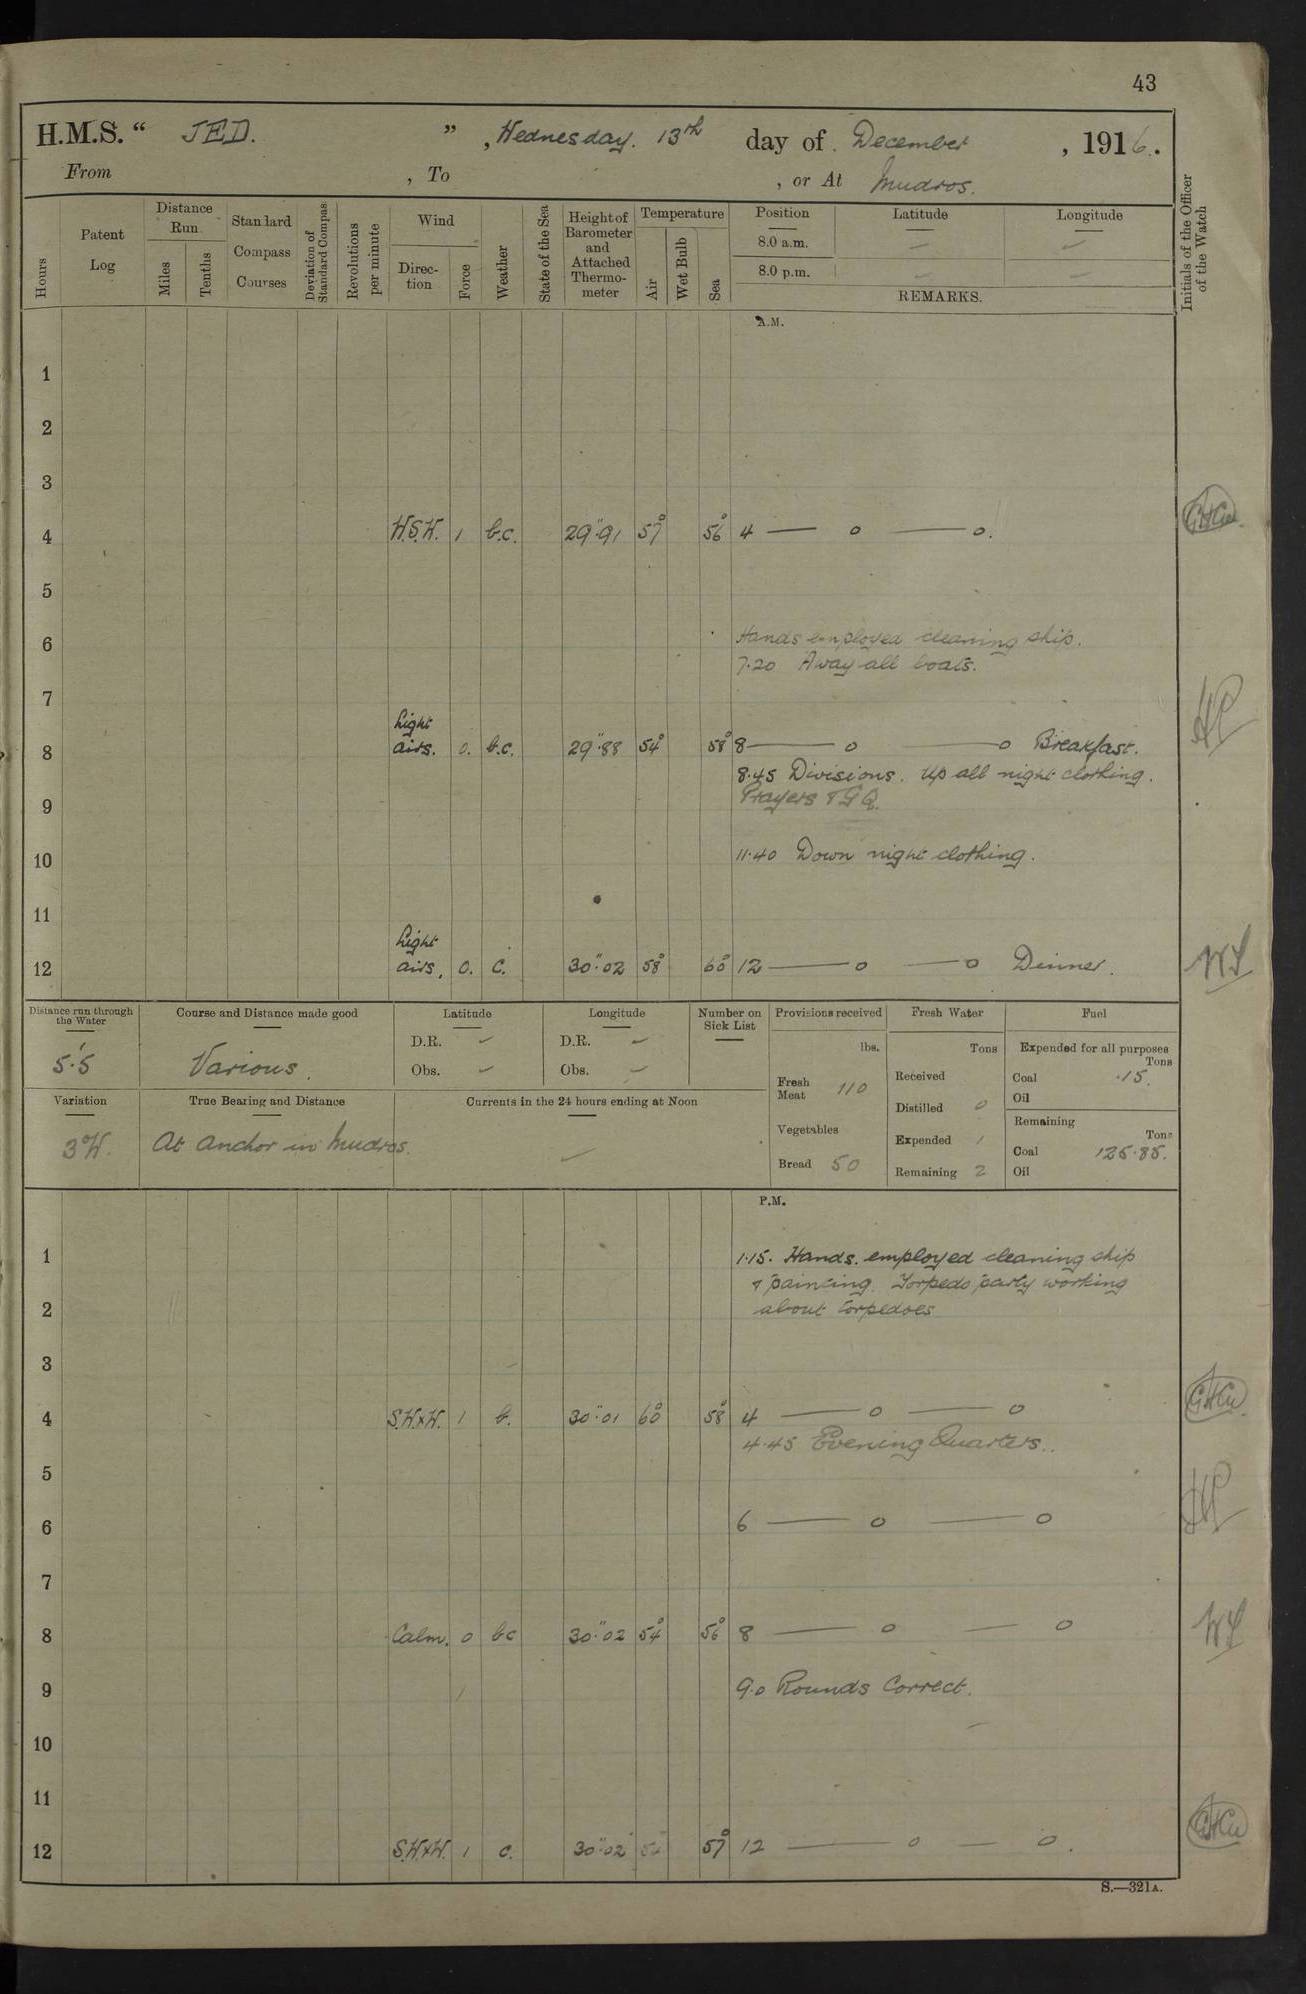 43
H.M.S. " JED. ", Wednesday. 13th day of December, 1916.
From , To , or At Mudros.
Hours
Patent Log
Distance Run
Miles
Tenths
Standard Compass Courses
Deviation of Standard Compass
Revolutions per minute
Wind
Direction
Force
Weather
State of the Sea
Height of Barometer and Attached Thermometer
Temperature
Air
Wet Bulb
Sea
Position
Latitude
Longitude
8.0 a.m.
8.0 p.m.
REMARKS.
Initials of the Officer of the Watch
A.M.
1
2
3
4 W.S.W. 1 b.c. 29".91 57° 56° 4 — o — o.
5
6 Hands employed cleaning ship.
7.20 Away all boats.
7
8 Light airs. 0. b.c. 29".88 54° 58° 8 — o — o Breakfast.
8.45 Divisions. Up all night clothing.
9 Prayers & G Q.
10 11.40 Down night clothing.
11
12 Light airs. 0. c. 30".02 58° 60° 12 — o — o Dinner.
WS
Distance run through the Water
5'.5
Course and Distance made good
Various.
Latitude
D.R. ✓
Obs. ✓
Longitude
D.R. ✓
Obs. ✓
Number on Sick List
Provisions received
lbs.
Fresh Meat 110
Vegetables
Bread 50
Fresh Water
Tons
Received
Distilled 0
Expended 1
Remaining 2
Fuel
Expended for all purposes
Tons
Coal .15.
Oil
Remaining
Tons
Coal 125.85.
Oil
Variation
3°W.
True Bearing and Distance
At Anchor in Mudros.
Currents in the 24 hours ending at Noon
✓
P.M.
1 1.15. Hands employed cleaning ship
& painting. Torpedo party working
2 about torpedoes
3
4 S.W.xW. 1 b. 30".01 60° 58° 4 — o — o
4.45 Evening Quarters.
5
6 6 — o — o
7
8 Calm. 0 bc 30".02 54° 56° 8 — o — o
WS
9 9.0 Rounds Correct.
10
11
12 S.W.xW. 1 c. 30".02 57° 12 — o — o.
S.—321A.